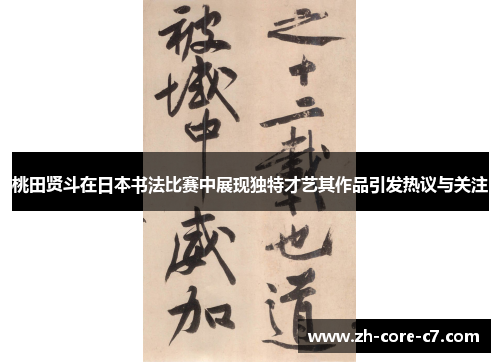 之十二載也道
被域中威加
桃田贤斗在日本书法比赛中展现独特才艺其作品引发热议与关注
www.zh-core-c7.com